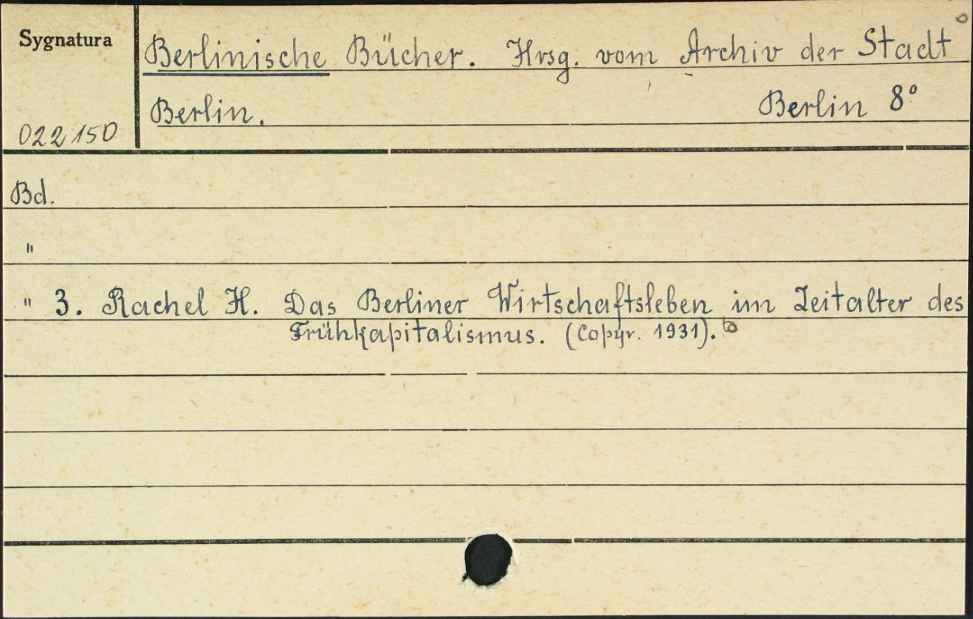 Sygnatura
Berlinische Bücher. Hrsg. vom Archiv der Stadt
Berlin. Berlin 8°
022150
Bd.
"
" 3. Rachel H. Das Berliner Wirtschaftsleben im Zeitalter des
Frühkapitalismus. (Copyr. 1931).